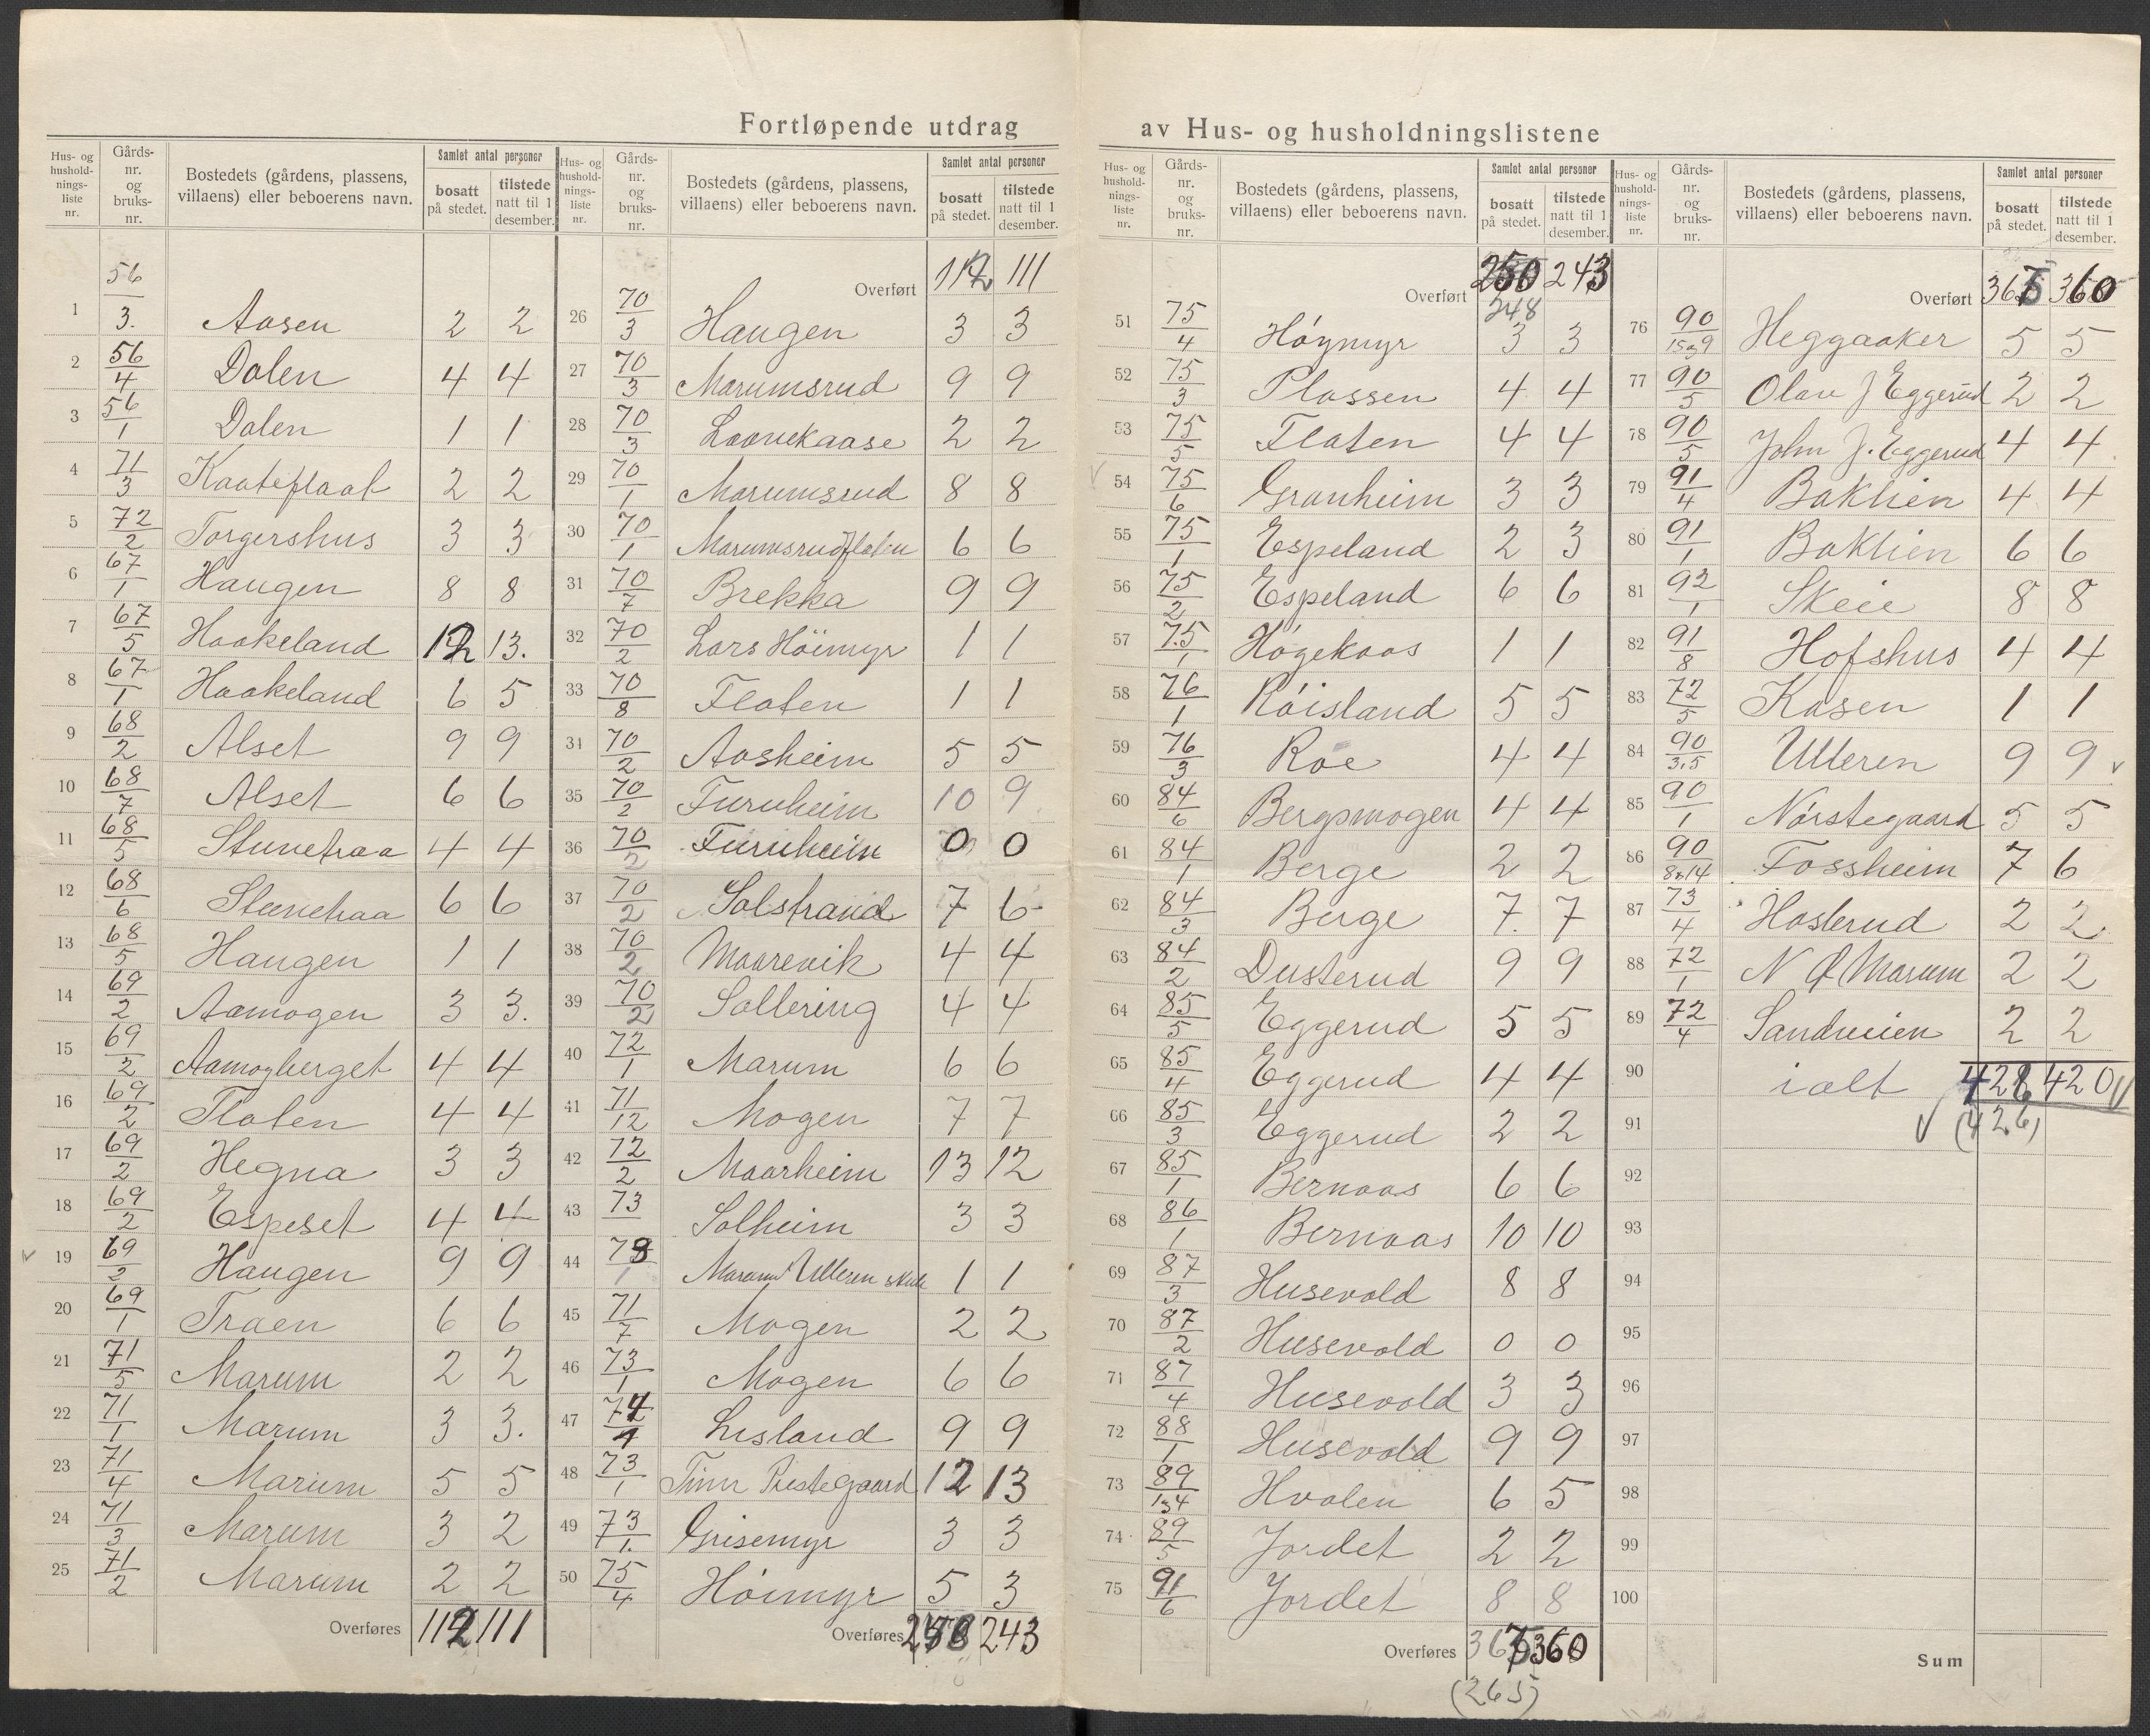 Fortløpende utdrag av Hus- og husholdningslistene
Hus- og hushold-nings-liste nr. | Gårds-nr. og bruks-nr. | Bostedets (gårdens, plassens, villaens) eller beboerens navn. | Samlet antal personer | bosatt på stedet. | tilstede natt til 1 desember.
1 56/3. Aasen 2 2
2 56/4 Dalen 4 4
3 56/1 Dalen 1 1
4 71/3 Kaateplaat 2 2
5 72/2 Torgershus 3 3
6 67/1 Haugen 8 8
7 67/5 Haakeland 12 13.
8 67/1 Haakeland 6 5
9 68/2 Alset 9 9
10 68/7 Alset 6 6
11 68/5 Stunetraa 4 4
12 68/6 Stunetraa 6 6
13 68/5 Haugen 1 1
14 69/2 Aamogen 3 3.
15 69/2 Aamogberget 4 4
16 69/2 Flaten 4 4
17 69/2 Hegna 3 3
18 69/2 Espeset 4 4
19 69/2 Haugen 9 9
20 69/1 Traen 6 6
21 71/5 Marum 2 2
22 71/1 Marum 3 3.
23 71/4 Marum 5 5
24 71/3 Marum 3 2
25 71/2 Marum 2 2
Overføres 112 111
Hus- og hushold-nings-liste nr. | Gårds-nr. og bruks-nr. | Bostedets (gårdens, plassens, villaens) eller beboerens navn. | Samlet antal personer | bosatt på stedet. | tilstede natt til 1 desember.
Overført 112 111
26 70/3 Haugen 3 3
27 70/3 Marumsrud 9 9
28 70/3 Laavekaase 2 2
29 70/1 Marumsrud 8 8
30 70/1 Marumsrudflaten 6 6
31 70/7 Brekka 9 9
32 70/2 Lars Höimyr 1 1
33 70/8 Flaten 1 1
34 70/2 Aasheim 5 5
35 70/2 Furuheim 10 9
36 70/2 Furuheim 0 0
37 70/2 Solstrand 7 6
38 70/2 Maarevik 4 4
39 70/2 Sollering 4 4
40 72/1 Marum 6 6
41 71/12 Mogen 7 7
42 72/2 Maarheim 13 12
43 73 Solheim 3 3
44 73/1 Marum Ulleren skule 1 1
45 71/7 Mogen 2 2
46 73/1 Mogen 6 6
47 74/1 Lisland 9 9
48 73/1 Tinn Prestegaard 12 13
49 73/1. Grisemyr 3 3
50 75/4 Höimyr 5 3
Overføres 250 243
Hus- og hushold-nings-liste nr. | Gårds-nr. og bruks-nr. | Bostedets (gårdens, plassens, villaens) eller beboerens navn. | Samlet antal personer | bosatt på stedet. | tilstede natt til 1 desember.
Overført 250 243
248
51 75/4 Höymyr 3 3
52 75/3 Plassen 4 4
53 75/5 Flaten 4 4
54 75/6 Granheim 3 3
55 75/1 Espeland 2 3
56 75/2 Espeland 6 6
57 75/1 Högekaas 1 1
58 76/1 Röisland 5 5
59 76/3 Roe 4 4
60 84/6 Bergsmogen 4 4
61 84/1 Berge 2 2
62 84/3 Berge 7. 7
63 84/2 Dusterud 9 9
64 85/5 Eggerud 5 5
65 85/4 Eggerud 4 4
66 85/3 Eggerud 2 2
67 85/1 Bernaas 6 6
68 86/1 Bernaas 10 10
69 87/3 Husevold 8 8
70 87/2 Husevold 0 0
71 87/4 Husevold 3 3
72 88/1 Husevold 9 9
73 89/1 3 4 Hvalen 6 5
74 89/5 Jordet 2 2
75 91/6 Jordet 8 8
Overføres 367 360
(265)
Hus- og hushold-nings-liste nr. | Gårds-nr. og bruks-nr. | Bostedets (gårdens, plassens, villaens) eller beboerens navn. | Samlet antal personer | bosatt på stedet. | tilstede natt til 1 desember.
Overført 367 360
76 90/15 og 9 Heggaaker 5 5
77 90/5 Olav J Eggerud 2 2
78 90/5 John J. Eggerud 4 4
79 91/4 Baklien 4 4
80 91/1 Baklien 6 6
81 92/1 Skeie 8 8
82 91/8 Hofshus 4 4
83 72/5 Kasen 1 1
84 90/3,5 Ulleren 9 9 v
85 90/1 Nørstegaard 5 5
86 90/8 14 Fossheim 7 6
87 73/4 Haslerud 2 2
88 72/1 N Marum 2 2
89 72/4 Sandveien 2 2
90 ialt 428 420 v
91 v (426)
92
93
94
95
96
97
98
99
100
Sum